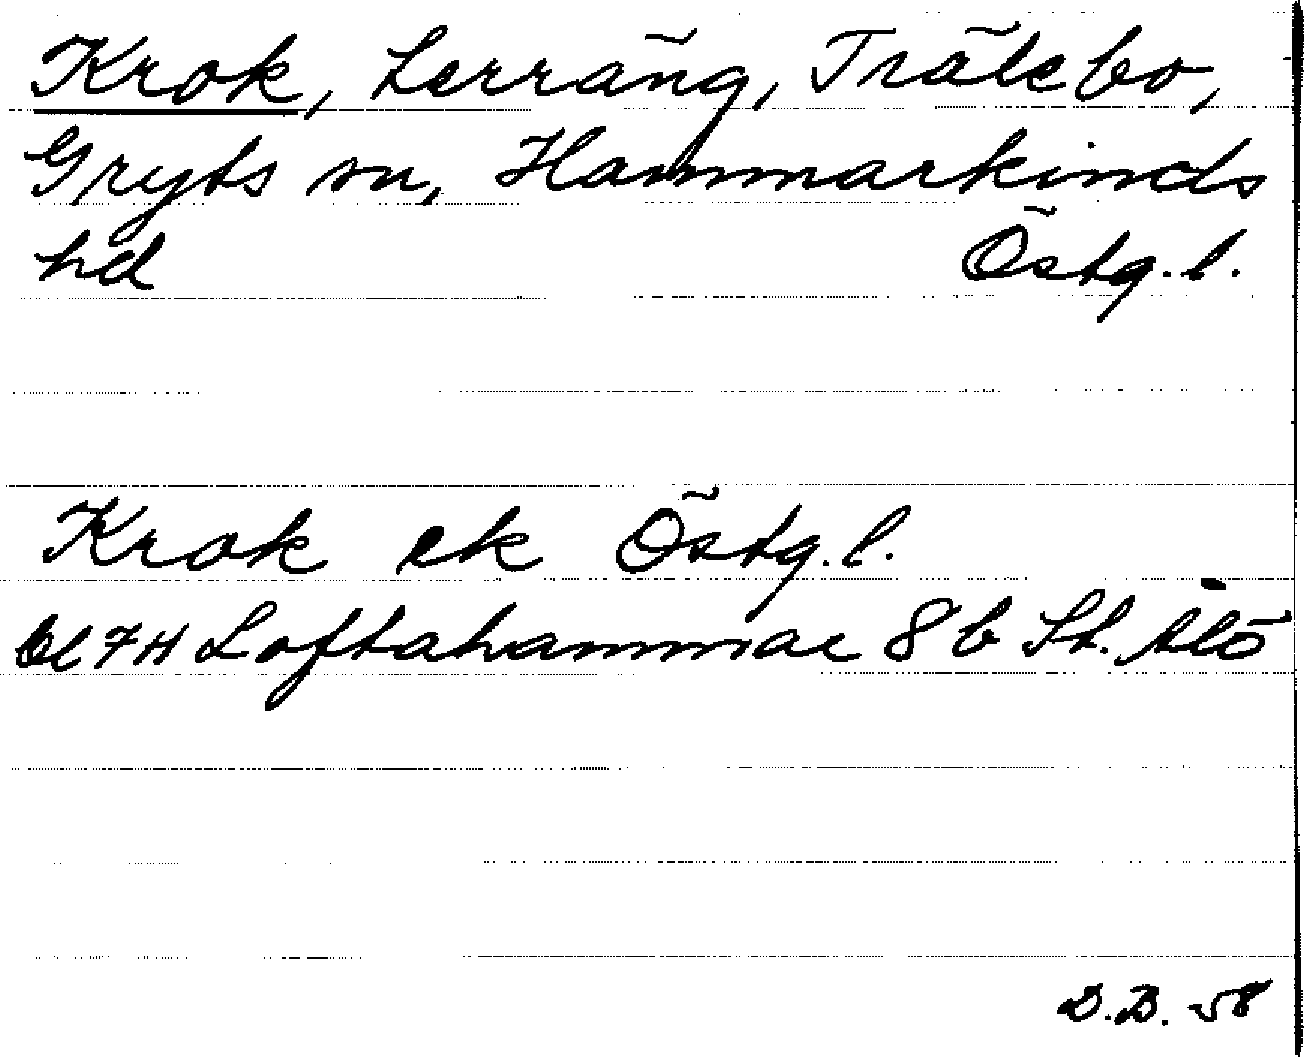 Krok, Lerräng, Trälebo,
Gryts sn, Hammarkinds
hd Östg. l.
Krok ek Östg. l.
bl 7H Loftahammar 8b St. Ålö
D.B. 58